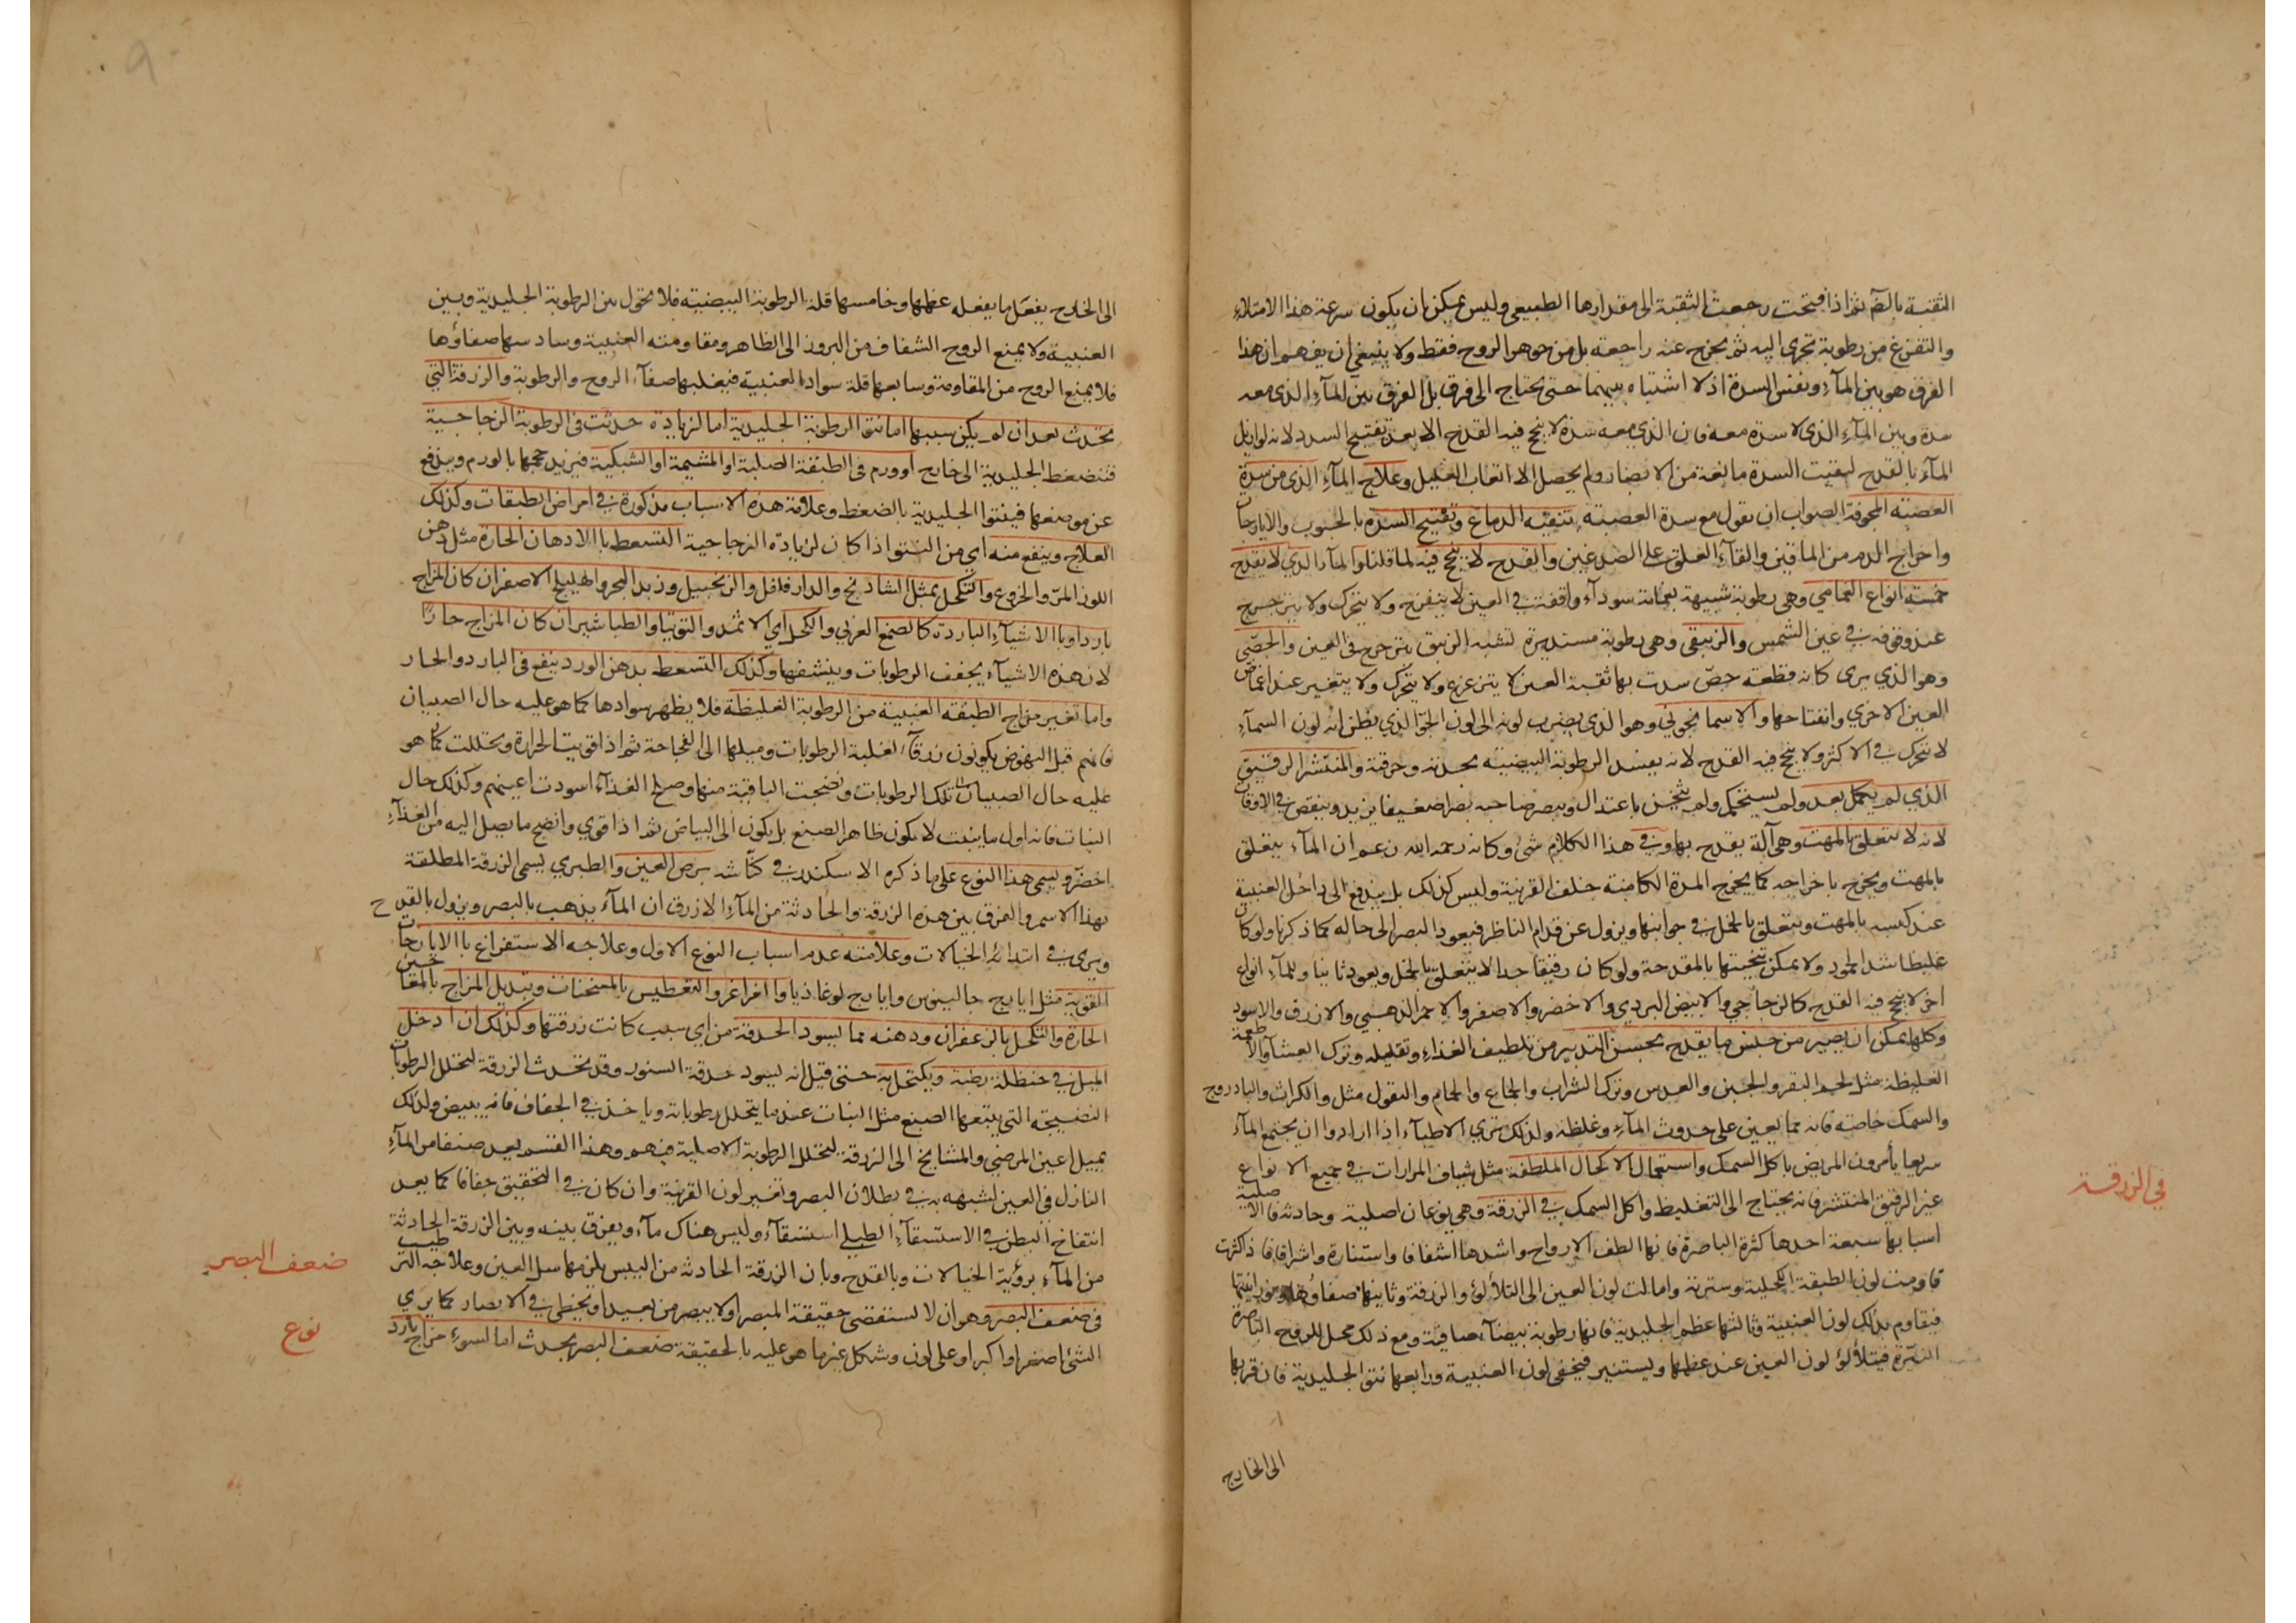 الثقبة بالضم ثم اذا فتحت رجعت الثقبة الى مقدارها الطبيعى وليس يمكن ان يكون سرعة هذا الامتلاء
والتفرغ من رطوبة تجرى اليه ثم يخرج عنه راجعة بل من جوهر الروح فقط ولا ينبغي ان يفهم ان هذا
الفرق هو بين الماء ونفس السدة اذ لا اشتباه بينهما حتى يحتاج الى فرق بل الفرق بين الماء الذى معه
سدة وبين الماء الذى لا سدة معه فان الذى معه سدة لا ينجح فيه القدح الا بعد تفتيح السدد لانه لو ازيل
الماء بالقدح لبقيت السدة مانعة من الابصار ولم يحصل الا اتعاب العليل وعلاج الماء الذى من سدة
العصبة المجوفة الصواب ان نقول مع سدة العصبة تنقية الدماغ وتفتيح السدة بالحبوب والايارجات
واخراج الدم من الماقين والقاء العلق على الصدغين والقدح لا ينجح فيه لما قلنا والماء الذي لا يقدح
خمسة انواع الغمامي وهى رطوبة شبيهة بغمامة سوداء واقفة في العين لا ينفرج ولا يتحرك ولا يترجرج
عند وقوفه في عين الشمس والزيبقى وهى رطوبة مستديرة تشبه الزيبق يترجرج فى العين والجصّي
وهو الذي يرى كانه قطعة جصّ سدت بها ثقبة العين لا يتزعزع ولا يتحرك ولا يتغير عند اغماض
العين الاخري وانفتاحها والاسمانجوني وهو الذى يضرب لونه الى لون الجوّ الذي يظن انه لون السماء
لا تتحرك في الاكثر ولا ينجح فيه القدح لانه يفسد الرطوبة البيضية بحدته وحرقة والمنتشر الرقيق
الذي لم يكمل بعد ولم يستحكم ولم يثخن باعتدال ويبصر صاحبه بصرا ضعيفا يزيد وينقص في الاوقات
لانه لا يتعلق بالمهت وهى آلة يقدح بها وفي هذا الكلام شئ وكانه رحمه الله زعم ان الماء يتعلق
بالمهت ويخرج باخراجه كما يخرج المدة الكامنة خلف القرنية وليس كذلك بل يندفع الى داخل العنبية
عند كبسه بالمهت ويتعلق بالخمل في جوانبها ويزول عن قدام الناظر فيعود البصر الى حاله كما ذكرنا ولو كان
غليظا شديد الجمود ولا يمكن تنحيتها بالمقدحة ولو كان رقيقا جدا لا يتعلق بالخمل ويعود ثانيا وللماء انواع
اخر لا ينجح فيه القدح كالزجاجي والابيض البردي والاخضر والاصفر والاحمر الذهبي والازرق والاسود
وكلها يمكن ان يصير من جنس ما يقدح بحسن التدبير من تلطيف الغذاء وتقليله وترك العشاء والاطعمة
الغليظة مثل لحم البقر والجبن والعدس وترك الشراب والجماع والحمام والبقول مثل والكراث والبادروج
والسمك خاصة فانه مما يعين على حدوث الماء وغلظه ولذلك ترى الاطباء اذا ارادوا ان يجتمع الماء
سريعا يأمرون المريض باكل السمك واستعمال الاكحال الملطفة مثل شياف المرارات في جميع الانواع
غير الرقيق المنتشر فانه يحتاج الى التغليظ واكل السمك في الزرقة وهى نوعان اصلية وحادثة فالاصلية
اسبابها سبعة احدها كثرة الباصرة فانها الطف الارواح واشدها اشفافا واستنارة واشراقا فاذا كثرت
قاومت لون الطبقة الكحلية وسترته وامالت لون العين الى التلألؤ والزرقة وثانيها صفاؤها ونورانيتها
فيقاوم بذلك لون العنبية وثالثها عظم الجليدية فانها رطوبة بيضاء صافية ومع ذلك محل للروح الباصرة
النيرة فيتلألؤ لون العين عند عظمها ويستنير فيخفى لون العنبية ورابعها نتو الجليدية فان قربها
الى الخارج
في الزرقة
الى الخارج يفعل ما يفعله عظمها وخامسها قلة الرطوبة البيضية فلا تحول بين الرطوبة الجليدية وبين
العنبية ولا يمنع الروح الشفاف من البروز الى الظاهر ومقاومته العنبية وسادسها صفاؤها
فلا يمنع الروح من المقاومة وسابعها قلة سواد العنبية فيغلبها صفاء الروح والرطوبة والزرقة التي
تحدث بعد ان لم يكن سببها اما نتو الرطوبة الجليدية اما لزيادة حدثت فى الرطوبة الزجاجية
فتنضغط الجليدية الى خارج او ورم فى الطبقة الصلبة او المشيمة او الشبكية فيزيد حجمها بالورم ويندفع
عن موضعها فينتوا الجليدية بالضغط وعلامة هذه الاسباب مذكورة في امراض الطبقات وكذلك
العلاج وينفع منه اي من النتو اذا كان لزيادة الزجاجية التسعط باالادهان الحارة مثل دهن
اللوز المرّ والخروع والتكحل بمثل الشاذنج والدارفلفل والزنجبيل وزبد البحر والهليلج الاصفر ان كان المزاج
باردا وباالاشياء الباردة كالصمغ العربي والكحل اي الاثمد والتوتيا والطباشير ان كان المزاج حارّا
لان هذه الاشياء يجفف الرطوبات وينشفها وكذلك التسعط بدهن الورد ينفع فى البارد والحار
واما تغير مزاج الطبقة العنبية من الرطوبة الغليظة فلا يظهر سوادها كما هو عليه حال الصبيان
فانهم قبل النهوض يكونون زرقاء لغلبة الرطوبات وميلها الى الفجاجة ثم اذا قويت الحرارة وتحللت كما هو
عليه حال الصبيان تلك الرطوبات ونضجت الباقية منها وصلح الغذاء اسودت اعينهم وكذلك حال
النبات فانه اول ما ينبت لا يكون ظاهر الصبغ بل يكون الى البياض ثم اذا قوي وانضج ما يصل اليه من الغذاء
اخضرّ ويسمى هذا النوع على ما ذكره الاسكندر في كنّاشه برص العين والطبري يسمى الزرقة المطلقة
بهذا الاسم والفرق بين هذه الزرقة والحادثة من الماء الازرق ان الماء يذهب بالبصر ويزول بالقدح
ويرى في ابتدائه الخيالات وعلامته عدم اسباب النوع الاول وعلاجه الاستفراغ باالايارجات
القوية مثل ايارج جالينوس وايارج لوغاذيا والغراغر والتغطيس بالمسخنات وتبديل المزاج بالمعاجين
الحارة والتكحل بالزعفران ودهنه مما يسود الحدقة من اي سبب كانت زرقتها وكذلك ان ادخل
الميل في حنظلة رطبة ويكتحل به حتى قيل انه يسود حدقة السنور وقد تحدث الزرقة لتحلل الرطوبات
النضيجة التي يتبعها الصبغ مثل النبات عند ما يتحلل رطوباته وياخذ في الجفاف فانه يبيض ولذلك
يميل اعين المرضى والمشايخ الى الزرقة لتحلل الرطوبة الاصلية فيهم وهذا القسم يعد صنفا من الماء
النازل فى العين لشبهه به في بطلان البصر وتغير لون القرنية وان كان في التحقيق جفافا كما يعد
انتفاخ البطن في الاستسقاء الطبلي استسقاء وليس هناك ماء ويفرق بينه وبين الزرقة الحادثة
من الماء برؤية الخيالات وبالقدح وبان الزرقة الحادثة من اليبس يلزمها سل العين وعلاجه الترطيب
فى ضعف البصر وهو ان لا يستقصى حقيقة المبصر او لا يبصر من بعيد او يخطئ في الابصار كما يري
الشئ اصغر او اكبر او على لون وشكل غير ما هو عليه بالحقيقة ضعف البصر يحدث اما لسوء مزاج بارد
ضعف البصر
نوع
٩